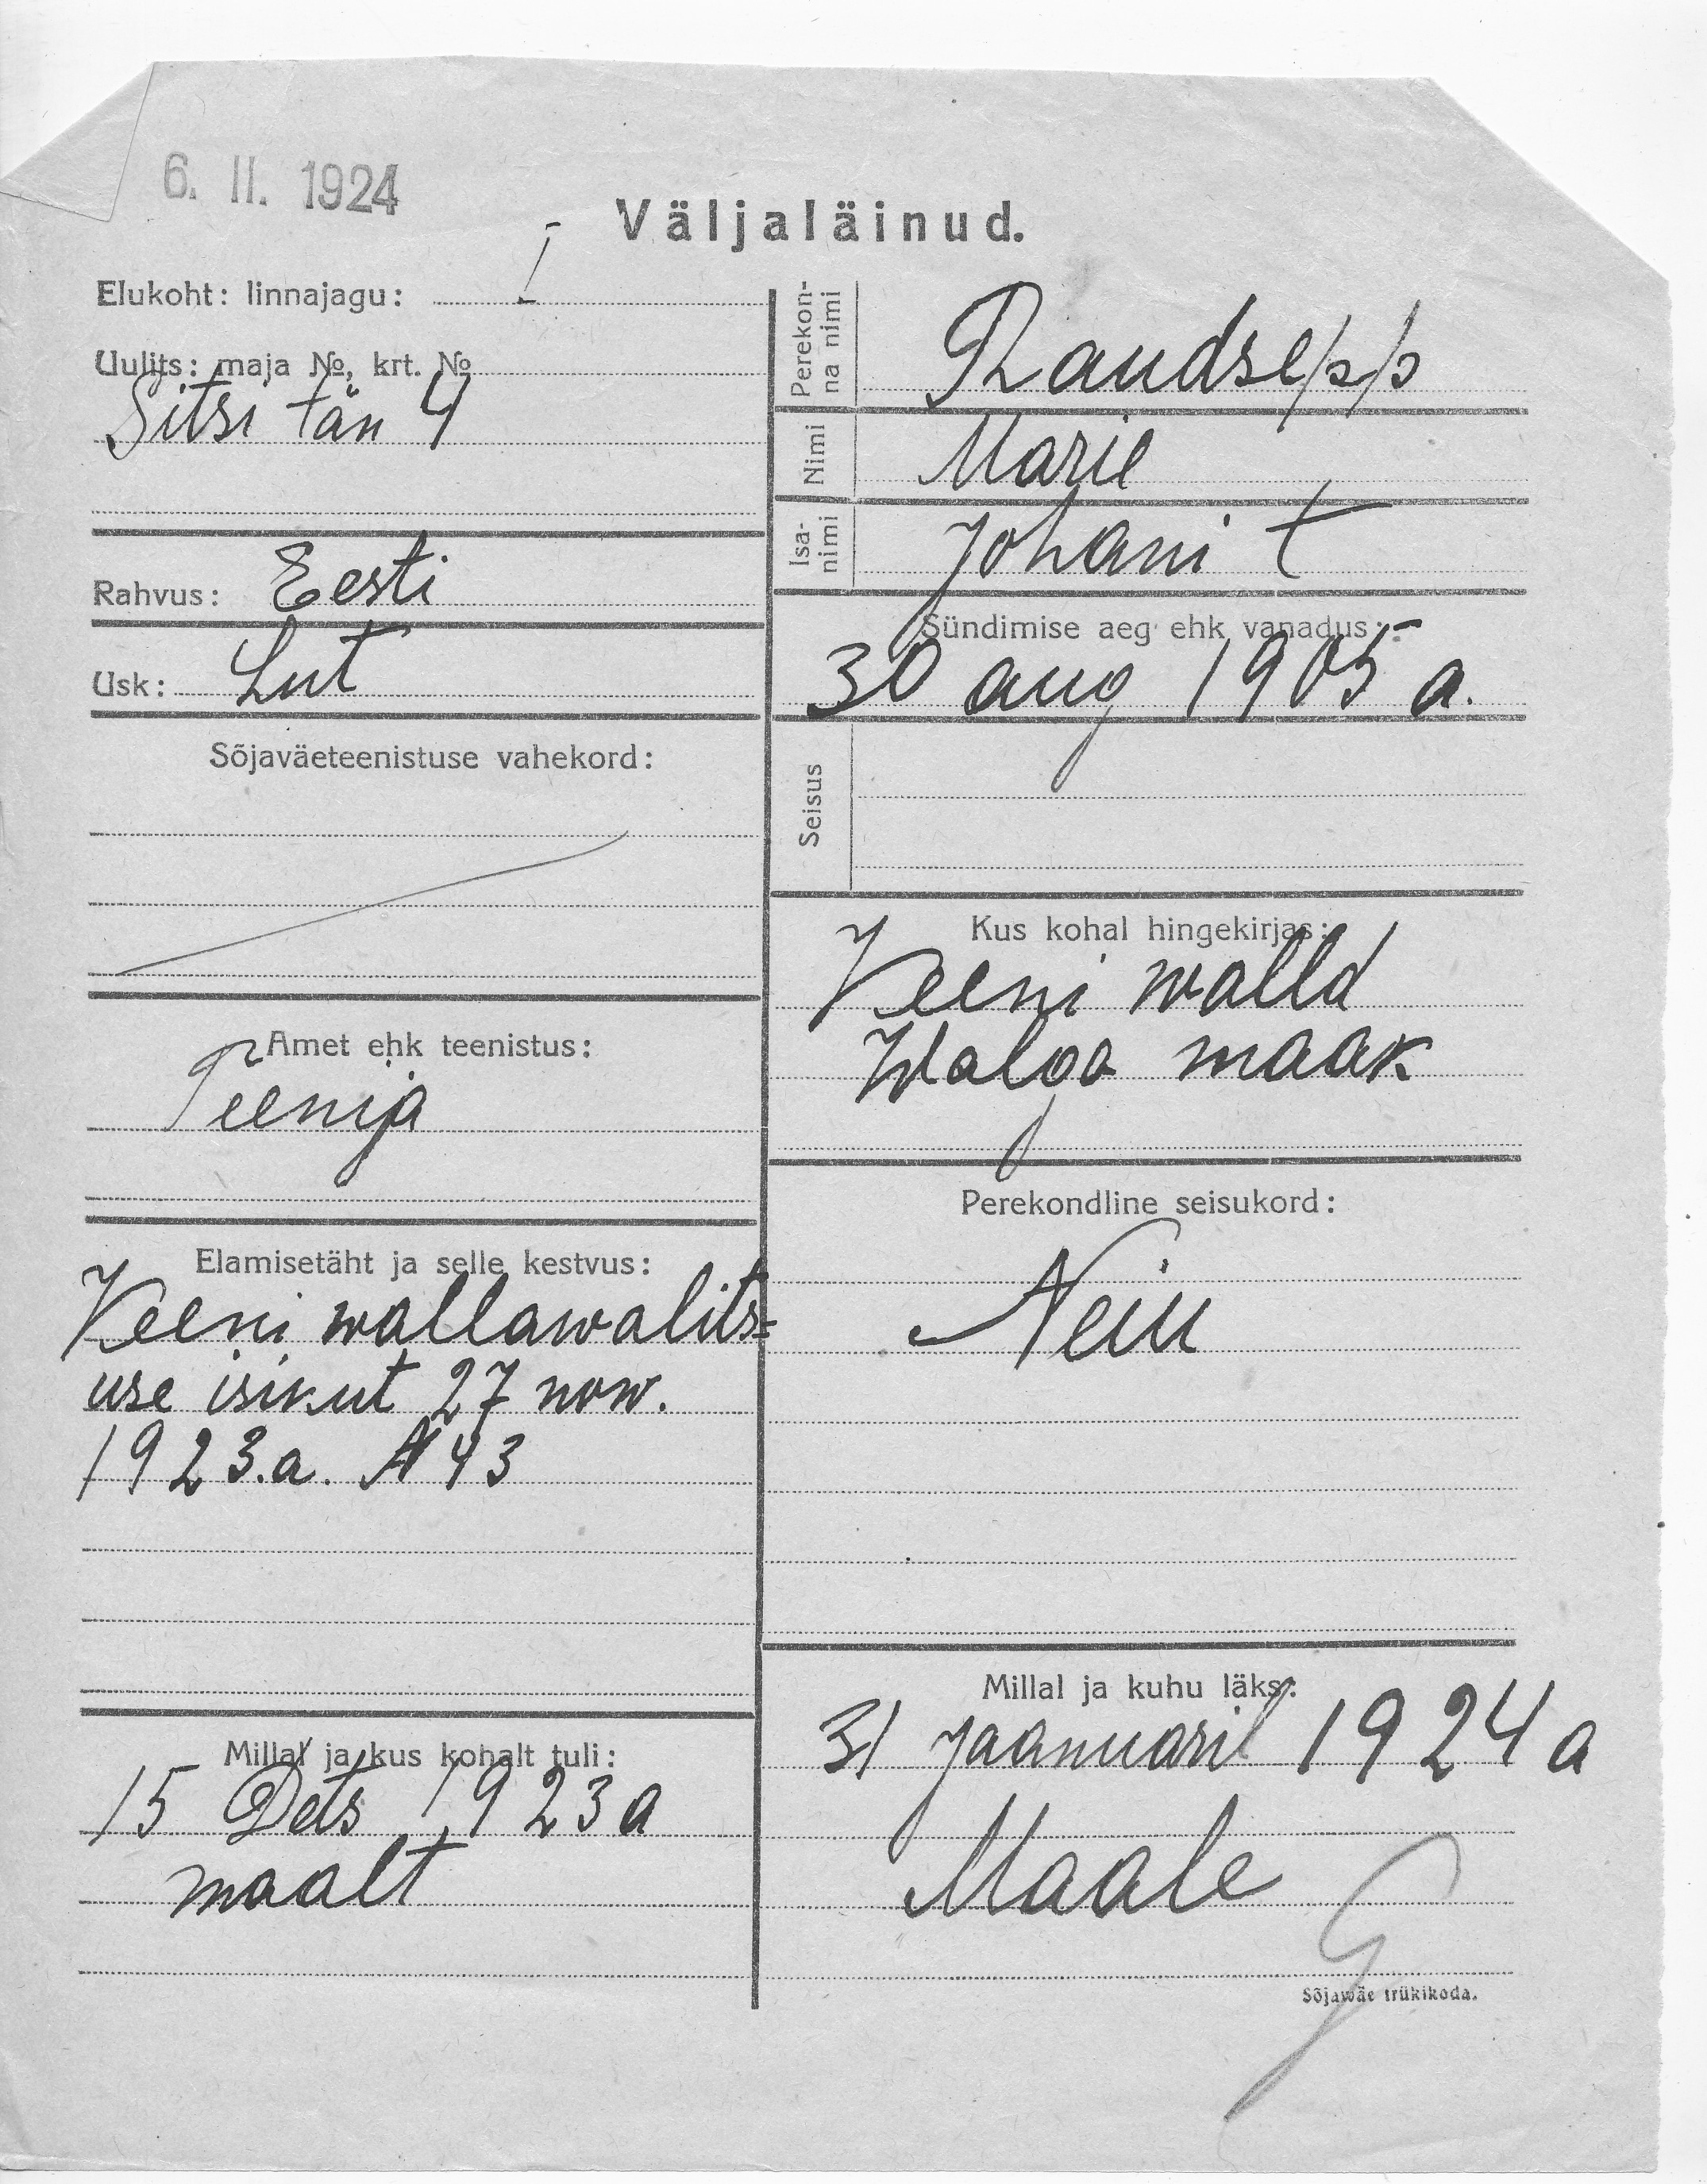 6. II. 1924
Väljaläinud.
Elukoht: linnajagu: I
Uulits: maja №, krt. №
Sitsi tän 4
Rahvus: Eesti
Usk: Lut
Sõjaväeteenistuse vahekord:
Amet ehk teenistus:
Teenija
Elamisetäht ja selle kestvus:
Keeni wallawalits=
use isikut 27 now.
1923.a. N 43
Millal ja kus kohalt tuli:
15 Dets 1923 a
maalt
Perekon-
na nimi
Raudsepp
Nimi
Marie
Isa-
nimi
Johani t
Sündimise aeg ehk vanadus:
30 aug 1905 a.
Seisus
Kus kohal hingekirjas:
Keeni walld
Walga maak
Perekondline seisukord:
Neiu
Millal ja kuhu läks:
31 Jaanuaril 1924 a
Maale
Sõjawäe trükikoda.